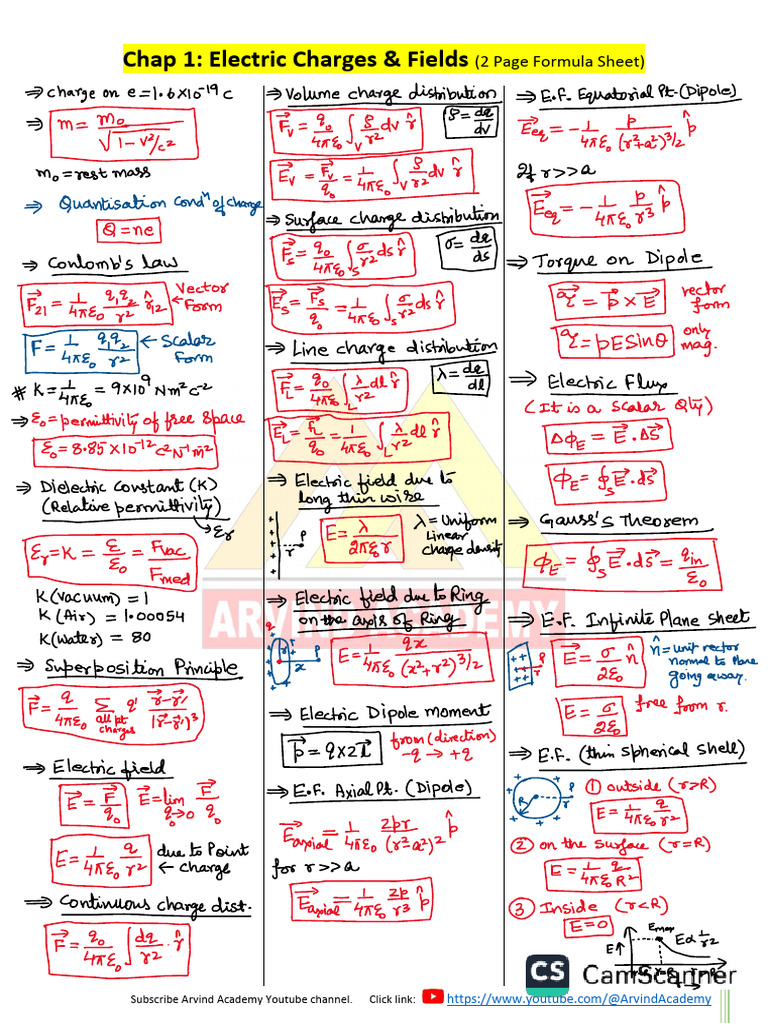 Chap 1: Electric Charges & Fields (2 Page Formula Sheet)
⇒ charge on e = 1.6×10⁻¹⁹ C
⇒ m = m₀ / √(1 - v²/c²)
m₀ = rest mass
⇒ Quantisation Condⁿ of charge
Q = ne
⇒ Coulomb's law
F⃗₂₁ = 1/4πε₀ q₁q₂/r² r̂₁₂ ← Vector Form
F = 1/4πε₀ q₁q₂/r² ← Scalar Form
# K = 1/4πε₀ = 9×10⁹ Nm²C⁻²
⇒ ε₀ = permittivity of free space
ε₀ = 8.85×10⁻¹² C²N⁻¹m⁻²
⇒ Dielectric Constant (K)
(Relative permittivity) → εr
εr = K = ε/ε₀ = Fvac/Fmed
K (Vacuum) = 1
K (Air) = 1.00054
K (Water) = 80
⇒ Superposition Principle
F⃗ = q/4πε₀ Σ all pt charges q' (r⃗ - r⃗')/|r⃗ - r⃗'|³
⇒ Electric field
E⃗ = F⃗/q₀ E⃗ = lim q₀→0 F⃗/q₀
E = 1/4πε₀ q/r² due to Point ← charge
⇒ Continuous charge dist.
F⃗ = q₀/4πε₀ ∫ dq/r² · r̂
⇒ Volume charge distribution
F⃗v = q₀/4πε₀ ∫v ρ/r² dv r̂ ρ = dq/dv
E⃗v = F⃗v/q₀ = 1/4πε₀ ∫v ρ/r² dv r̂
⇒ Surface charge distribution
F⃗s = q₀/4πε₀ ∫s σ/r² ds r̂ σ = dq/ds
E⃗s = F⃗s/q₀ = 1/4πε₀ ∫s σ/r² ds r̂
⇒ Line charge distribution
F⃗L = q₀/4πε₀ ∫L λ/r² dl r̂ λ = dq/dl
E⃗L = F⃗L/q₀ = 1/4πε₀ ∫L λ/r² dl r̂
⇒ Electric field due to
long thin wire
r P
E = λ/2πε₀r
λ = Uniform
Linear
charge density
⇒ Electric field due to Ring
on the axis of Ring
q r x P
E = 1/4πε₀ qx/(x²+r²)^3/2
⇒ Electric Dipole moment
p⃗ = q×2l⃗ from (direction)
-q → +q
⇒ E.F. Axial Pt. (Dipole)
E⃗axial = 1/4πε₀ 2pr/(r²-a²)² p̂
for r>>a
E⃗axial = 1/4πε₀ 2p/r³ p̂
⇒ E.F. Equatorial Pt. (Dipole)
E⃗eq = - 1/4πε₀ p/(r²+a²)^3/2 p̂
If r>>a
E⃗eq = - 1/4πε₀ p/r³ p̂
⇒ Torque on Dipole
τ⃗ = p⃗ × E⃗ vector form
τ = pE Sinθ only mag.
⇒ Electric Flux
(It is a Scalar Qty)
ΔΦE = E⃗ · ΔS⃗
ΦE = ∮s E⃗ · ds⃗
⇒ Gauss's Theorem
ΦE = ∮s E⃗ · ds⃗ = qin/ε₀
⇒ E.F. Infinite Plane sheet
P r
E⃗ = σ/2ε₀ n̂
n̂ = unit vector
normal to Plane
going away.
E = σ/2ε₀ free from r.
⇒ E.F. (thin spherical shell)
R r P
① outside (r>R)
E = 1/4πε₀ q/r²
② on the surface (r=R)
E = 1/4πε₀ q/R²
③ Inside (r<R)
E = 0
Emax
E↑ E∝1/r²
ARVIND ACADEMY
CS CamScanner
Subscribe Arvind Academy Youtube channel. Click link: https://www.youtube.com/@ArvindAcademy